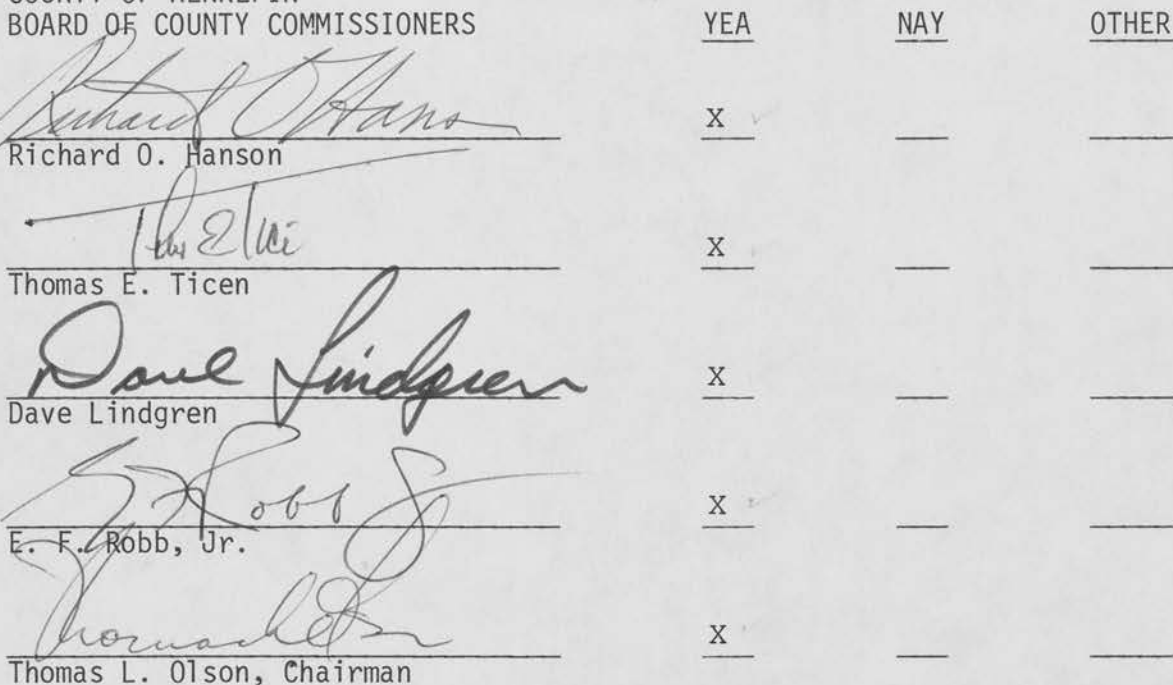 COUNTY OF HENNEPIN
BOARD OF COUNTY COMMISSIONERS YEA NAY OTHER
Richard O Hanso X
Richard O. Hanson
X
Thomas E. Ticen
Dave Lindgren X
Dave Lindgren
E F Robb Jr X
E. F. Robb, Jr.
Thomas L Olson X
Thomas L. Olson, Chairman